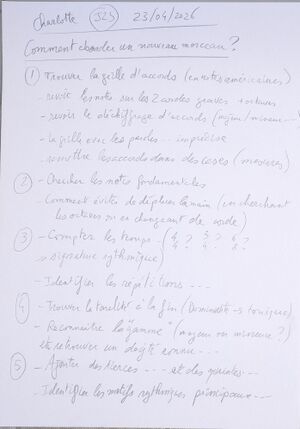 Charlotte J23 23/04/2026
Comment aborder un nouveau morceau?
① Trouver la grille d'accords (en notes américaines)
- revoir les notes sur les 2 cordes graves + octaves
- revoir le déchiffrage d'accords (majeur/mineur...
- la grille avec les paroles... imprécise
- remettre les accords dans des cases (mesures)
② - Chercher les notes fondamentales
- Comment éviter de déplacer la main (en cherchant
les octaves ou en changeant de corde)
③ - Compter les temps - (4/4? 3/4? 6/8?
= signature rythmique)
- Identifier les répétitions...
④ - Trouver la tonalité à la fin (Dominante → tonique)
- Reconnaître la "gamme" (majeure ou mineure?)
et retrouver un doigté connu...
⑤ - Ajouter des tierces... et des quintes...
- Identifier les motifs rythmiques principaux...